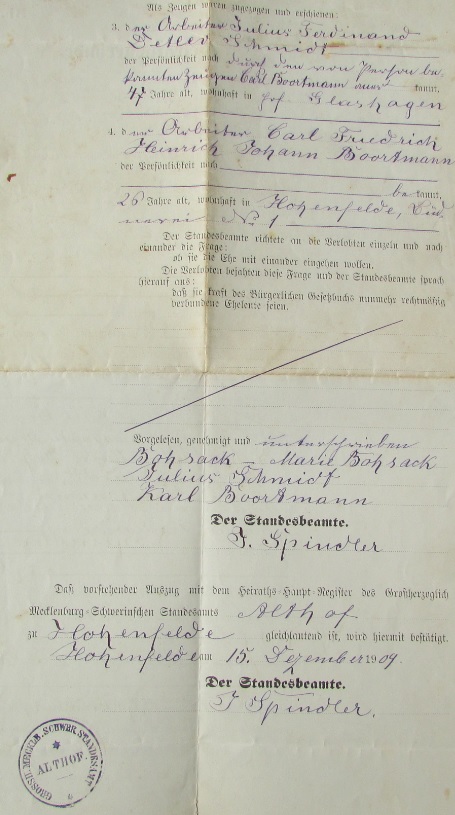 Als Zeugen waren zugezogen und erschienen:
3. der Arbeiter Julius Ferdinand
Detlev Schmidt
der Persönlichkeit nach durch den von Person be-
kannten Zeugen Carl Boortmann aner kannt,
47 Jahre alt, wohnhaft in Hof Glashagen
4. der Arbeiter Carl Friedrich
Heinrich Johann Boortmann
der Persönlichkeit nach
be kannt,
26 Jahre alt, wohnhaft in Hohenfelde, Büd-
nerei № 1
Der Standesbeamte richtete an die Verlobten einzeln und nach
einander die Frage:
ob sie die Ehe mit einander eingehen wollen.
Die Verlobten bejahten diese Frage und der Standesbeamte sprach
hierauf aus:
daß sie kraft des Bürgerlichen Gesetzbuchs nunmehr rechtmäßig
verbundene Eheleute seien.
Vorgelesen, genehmigt und unterschrieben
Bohsack – Marie Bohsack
Julius Schmidt
Karl Boortmann
Der Standesbeamte.
J. Spindler
Daß vorstehender Auszug mit dem Heiraths-Haupt-Register des Großherzoglich
Mecklenburg-Schwerinschen Standesamts Althof
zu Hohenfelde gleichlautend ist, wird hiermit bestätigt.
Hohenfelde am 15. Dezember 1909.
Der Standesbeamte.
J Spindler.
GROSSH. MECKLB. SCHWER. STANDESAMT
ALTHOF.